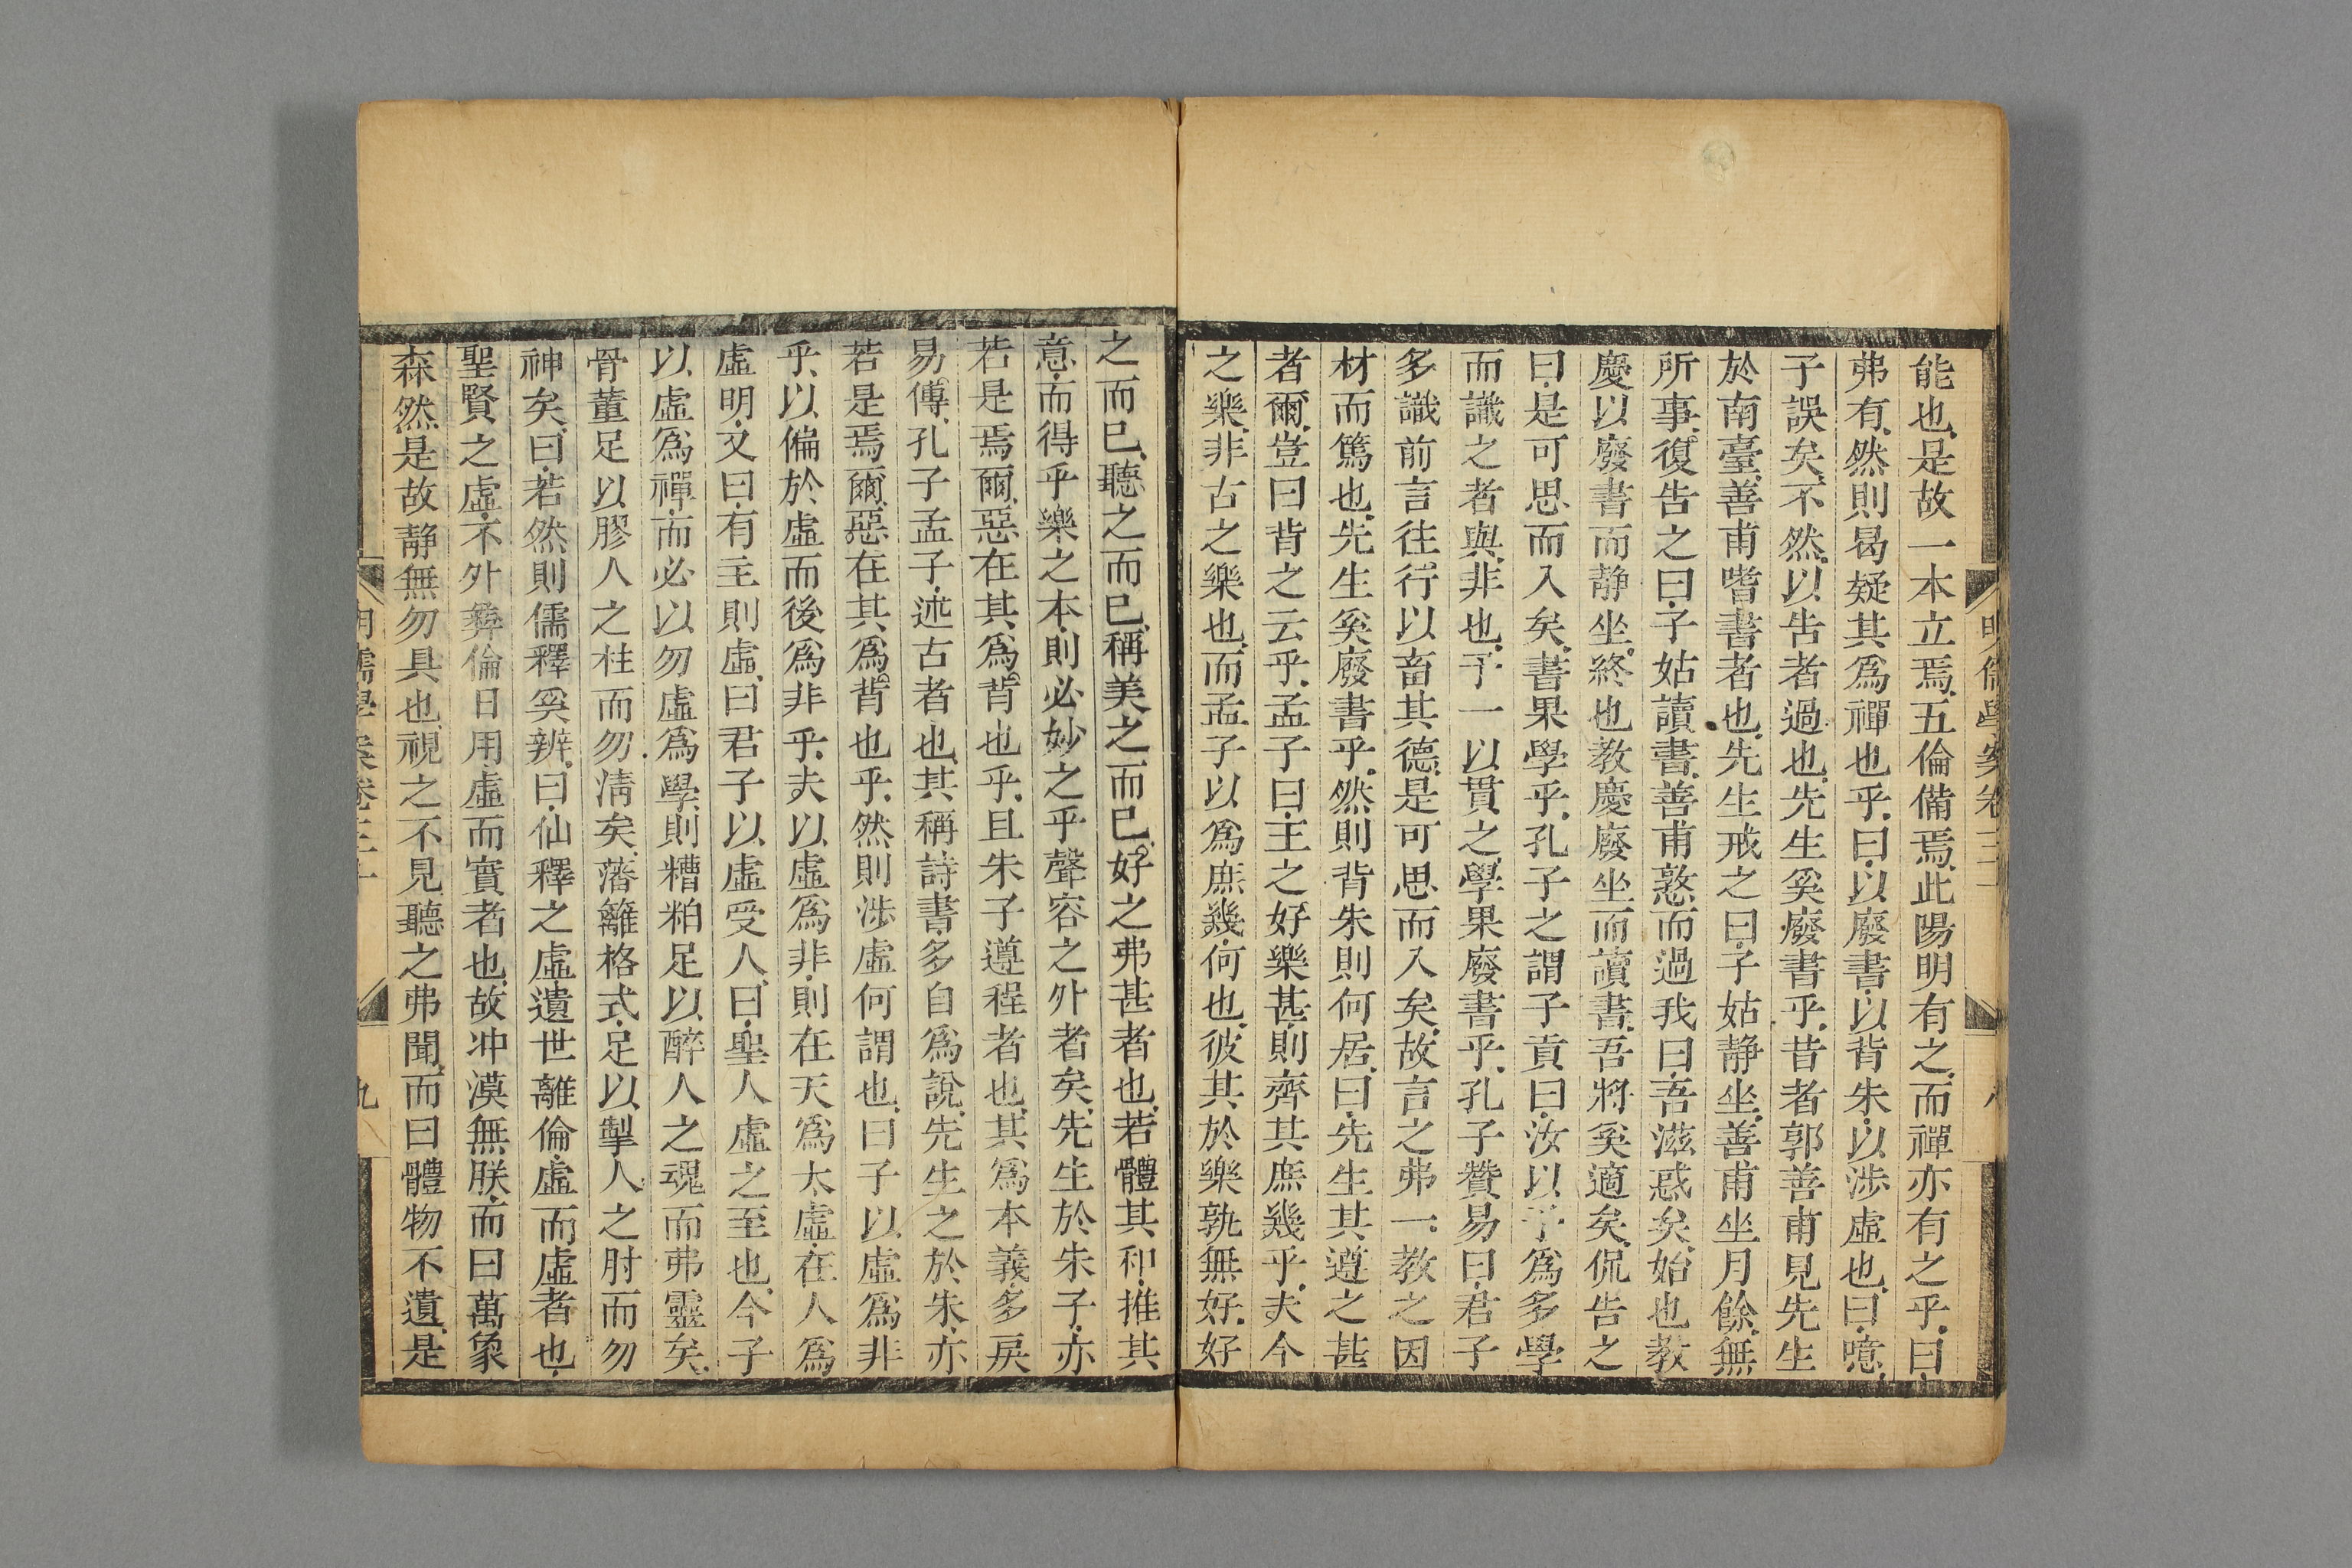 明儒學案卷三十
八
能也是故一本立焉五倫備焉此陽明有之而禪亦有之乎曰
弗有然則曷疑其爲禪也乎曰以廢書以背朱以涉虛也曰噫
子誤矣不然以告者過也先生奚廢書乎昔者郭善甫見先生
於南臺善甫嗜書者也先生戒之曰子姑靜坐善甫坐月餘無
所事復告之曰子姑讀書善甫憝而過我曰吾滋惑矣始也教
慶以廢書而靜坐終也教慶廢坐而讀書吾將奚適矣侃告之
曰是可思而入矣書果學乎孔子之謂子貢曰汝以予爲多學
而識之者與非也予一以貫之學果廢書乎孔子贊易曰君子
多識前言往行以畜其德是可思而入矣故言之弗一教之因
材而篤也先生奚廢書乎然則背朱則何居曰先生其遵之甚
者爾豈曰背之云乎孟子曰王之好樂甚則齊其庶幾乎夫今
之樂非古之樂也而孟子以爲庶幾何也彼其於樂孰無好好
之而已聽之而已稱美之而已好之弗甚者也若體其和推其
意而得乎樂之本則必妙之乎聲容之外者矣先生於朱子亦
若是焉爾惡在其爲背也乎且朱子遵程者也其爲本義多戾
易傳孔子孟子述古者也其稱詩書多自爲說先生之於朱亦
若是焉爾惡在其爲背也乎然則涉虛何謂也曰子以虛爲非
乎以偏於虛而後爲非乎夫以虛爲非則在天爲太虛在人爲
虛明又曰有主則虛曰君子以虛受人曰聖人虛之至也今子
以虛爲禪而必以勿虛爲學則糟粕足以醉人之魂而弗靈矣
骨董足以膠人之柱而勿清矣藩籬格式足以掣人之肘而勿
神矣曰若然則儒釋奚辨曰仙釋之虛遺世離倫虛而虛者也
聖賢之虛不外彝倫日用虛而實者也故冲漠無朕而曰萬象
森然是故靜無勿具也視之不見聽之弗聞而曰體物不遺是
明儒學案卷三十
九